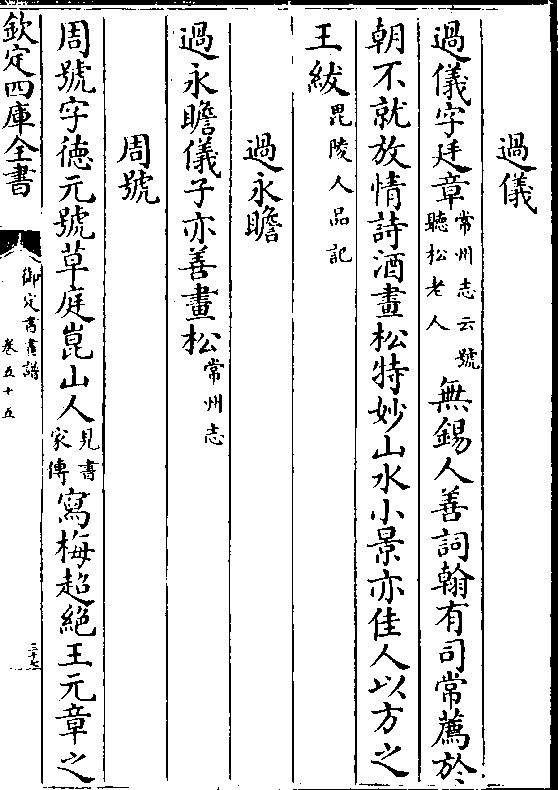 過儀
過儀字廷章常州志云號聽松老人無錫人善詞翰有司常薦於
朝不就放情詩酒畫松特妙山水小景亦佳人以方之
王紱毘陵人品記
過永瞻
過永瞻儀子亦善畫松常州志
周號
周號字德元號草庭崑山人見書家傳寫梅超絶王元章之
欽定四庫全書
御定書畫譜
卷五十五
二十七